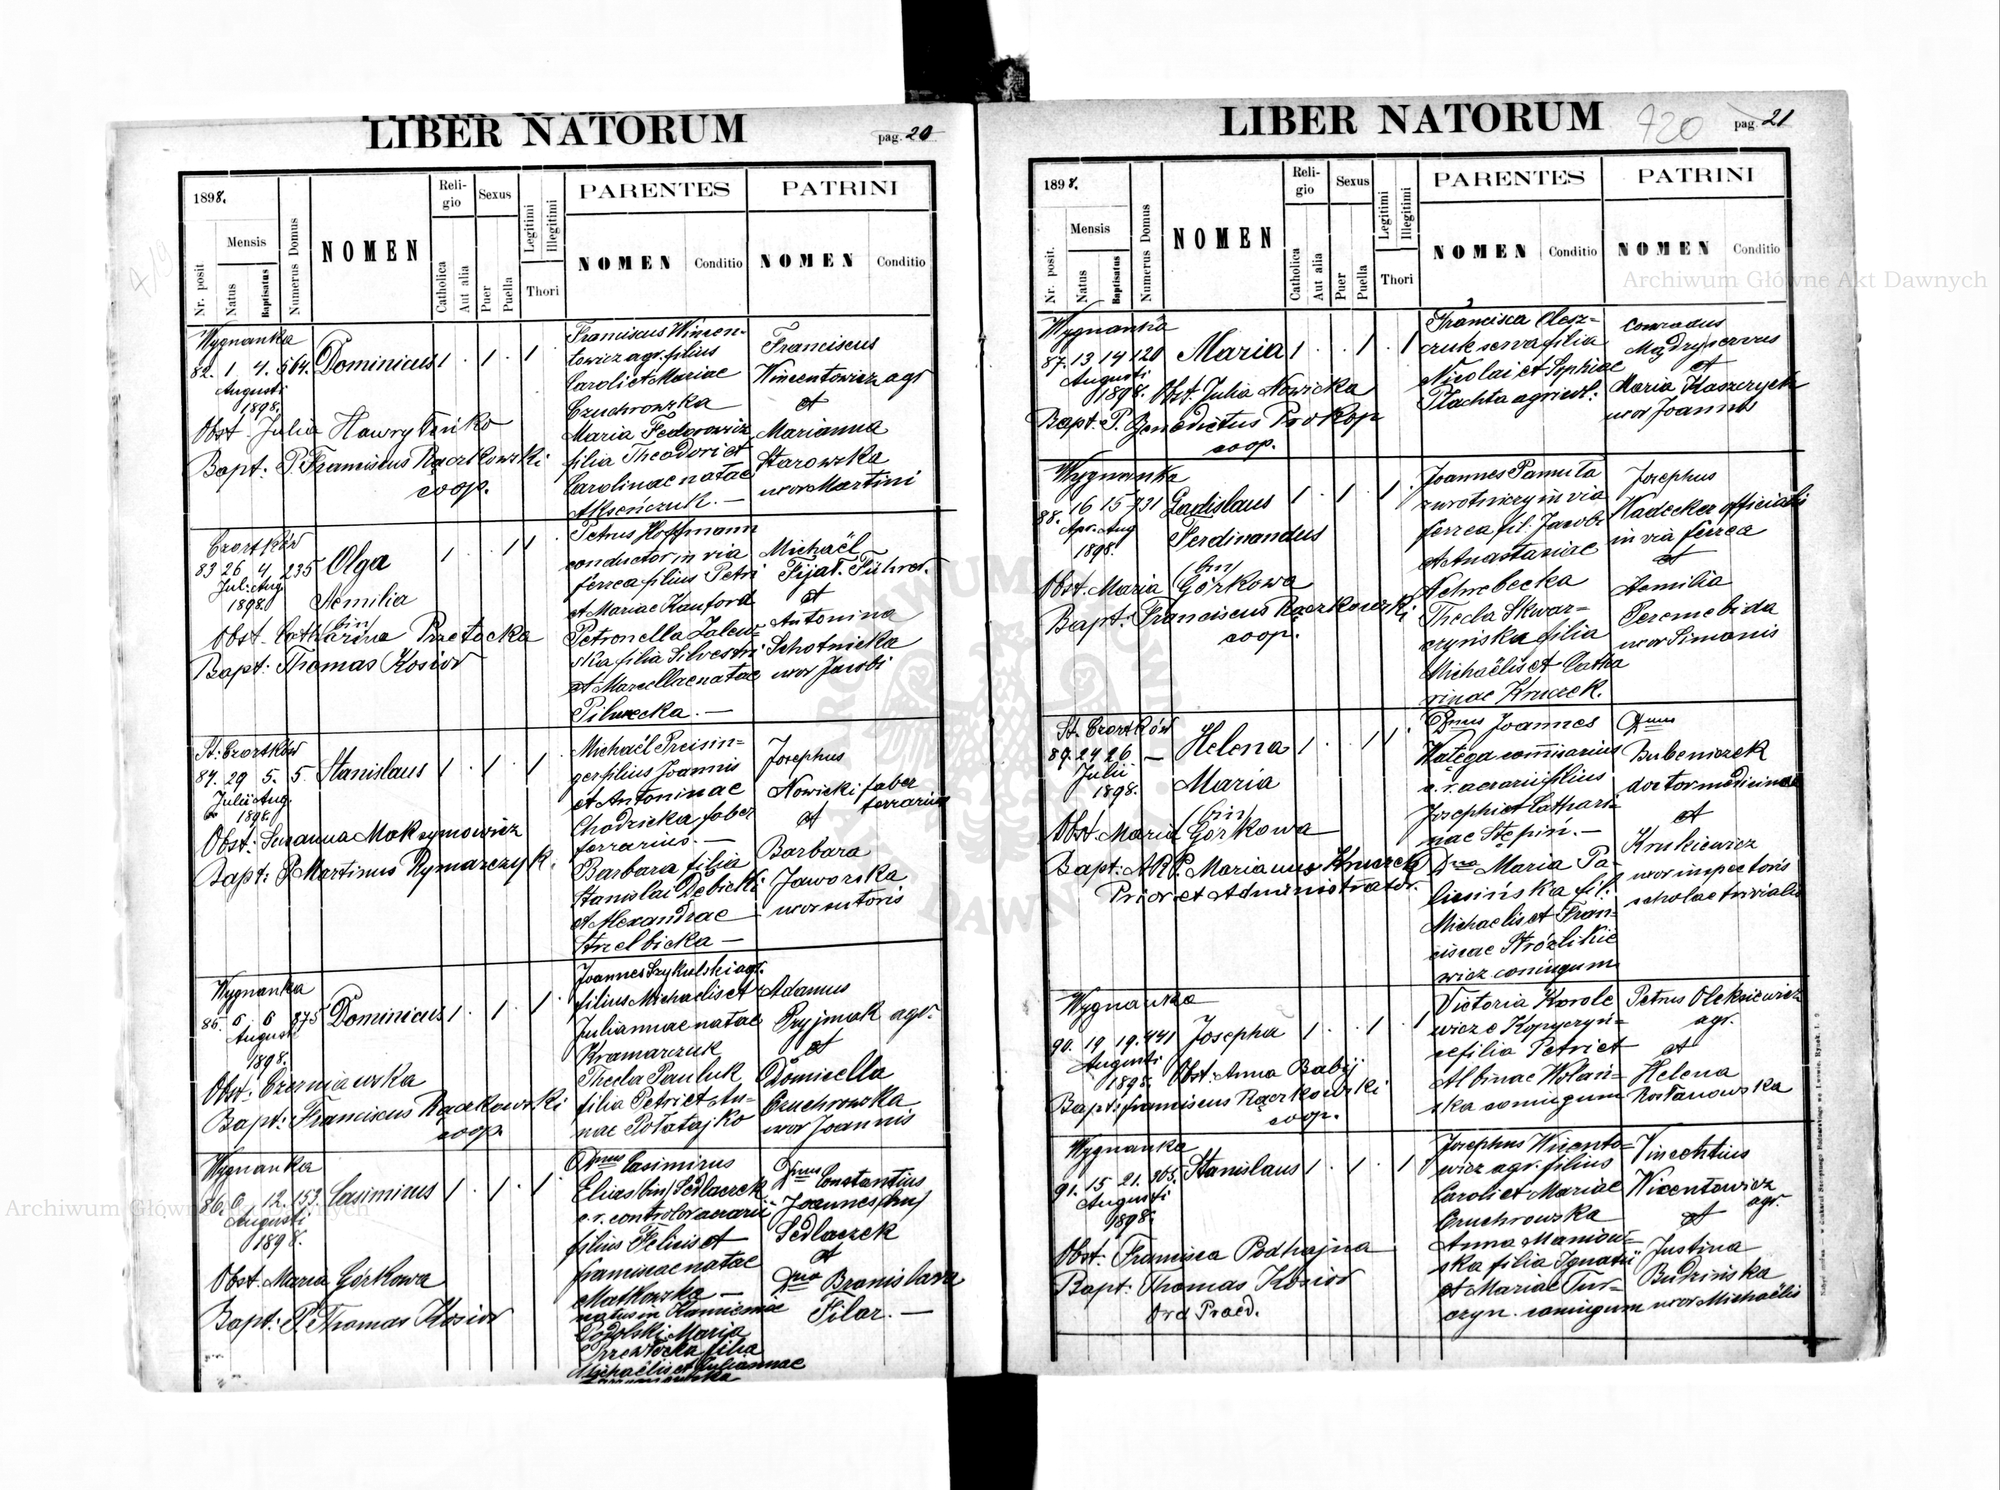 LIBER NATORUM
pag. 20
1898.
Nr. posit
Mensis
Natus
Baptisatus
Numerus Domus
NOMEN
Religio
Catholica
Aut alia
Sexus
Puer
Puella
Legitimi
Illegitimi
Thori
PARENTES
NOMEN
Conditio
PATRINI
NOMEN
Conditio
Wygnanka
82. 1 4. 504. Dominicus 1 . 1 . 1 .
Augusti
1898.
Obst. Julia Hawryteńko
Bapt: P. Franciscus Rączkowski
coop.
Franciscus Wincen-
towicz agr. filius
Caroli et Mariae
Czuchrowska
Maria Fedorowicz
filia Theodori et
Carolinae natae
Akseńczuk. —
Franciscus
Wincentowicz agr
et
Marianna
Starowska
uxor Martini
Czortków
83 26 4. 235 Olga 1 . . 1 1 .
Jul. Aug.
1898.
Aemilia
(bin)
Obst. Catharina Przetocka
Bapt: Thomas Kosior
Petrus Hoffmann
conductor in via
ferrea filius Petri
et Mariae Kauford
Petronella Zalew-
ska filia Silvestri
et Marcellae natae
Pilwecka. —
Michaël
Fijał. Führer.
et
Antonina
Schotnicka
uxor Jacobi
St. Czortków
84. 29 5. 5. Stanislaus 1 . 1 . 1 .
Julii Aug.
1898.
Obst: Susanna Maksymowicz
Bapt: P. Martinus Rymarczyk.
Michaël Preisin-
ger filius Joannis
et Antoninae
Chodzicka faber
ferrarius. —
Barbara filia
Stanislai Dębicki
et Alexandrae
Strzelbicka —
Josephus
Nowicki faber
ferrarius
et
Barbara
Jaworska
uxor sutoris
Wygnanka
85. 6 6 875 Dominicus 1 . 1 . 1 .
Augusti
1898.
Obst: Czerniawska
Bapt: Franciscus Rączkowski
coop.
Joannes Szykulski agr.
filius Michaelis et
Juliannae natae
Kramarczuk
Thecla Pauluk
filia Petri et An-
nae Połatajko
Adamus
Pryjmak agr.
et
Domicella
Czuchrowska
uxor Joannis
Wygnanka
86. 6 12. 153. Casimirus 1 . 1 . 1 .
Augusti
1898.
Obst. Maria Górkowa
Bapt: P. Thomas Kosior
Dnus Casimirus
Elias (bin) Sedlaczek
c.r. controlor aerarii
filius Felicis et
Franciscae natae
Matkowska —
natus in Kamieniec
Podolski Maria
Przewłocka filia
Michaëlis et Juliannae
Dnus Constantius
Joannes (bin)
Sedlaczek
et
Dna Bronislava
Pilar. —
LIBER NATORUM
420
pag. 21
1898.
Nr. posit.
Mensis
Natus
Baptisatus
Numerus Domus
NOMEN
Religio
Catholica
Aut alia
Sexus
Puer
Puella
Legitimi
Illegitimi
Thori
PARENTES
NOMEN
Conditio
PATRINI
NOMEN
Conditio
Wygnanka
87. 13 14 120 Maria 1 . . 1 . 1
Augusti
1898. Obst. Julia Nowicka
Bapt: P. Benedictus Prokop
coop.
Francisca Olesz-
czuk serva filia
Nicolai et Sophiae
Płachta agricol:
Conradus
Mądry servus
et
Maria Kaszczych
uxor Joannis
Wygnanka
88. 16 15 731 Ladislaus 1 . 1 . 1 .
Apr. Aug
1898.
Ferdinandus
(bin)
Obst: Maria Górkowa
Bapt: Franciscus Rączkowski
coop.
Joannes Pamuła
zwrotniczy in via
ferrea fil. Jacobi
et Anastasiae
Nchrebecka
Thecla Skwar-
czyńska filia
Michaëlis et Catha
rinae Kruczek.
Josephus
Kadecker officialis
in via ferrea
et
Aemilia
Peremebida
uxor Simonis
St. Czortków
89. 24 26. — Helena 1 . . 1 1 .
Julii
1898.
Maria
(bin)
Obst. Maria Górkowa
Bapt: A.R.P. Marianus Kruczek
Prior et Administrator.
Dnus Joannes
Wątęga commisarius
c.r. aerarii filius
Josephi et Cathari-
nae Stępiń. —
Dna Maria Pa-
liusińska fil.
Michaelis et Fran-
ciscae Stróżlikie
wicz coniugum
Dnus
Bubeniczek
doctor medicinae
et
Krukiewicz
uxor inspectoris
scholae trivialis
Wygnanka
90. 19 19. 441 Josepha 1 . . 1 . 1
Augusti
1898. Obst: Anna Babij
Bapt: Franciscus Rączkowski
coop.
Victoria Korole
wicz e Kopyczyń-
ce filia Petri et
Albinae Wolań-
ska coniugum
Petrus Oleksiewicz
agr.
et
Helena
Rostanowska
Wygnanka
91. 15 21. 305. Stanislaus 1 . 1 . 1 .
Augusti
1898.
Obst: Francisca Podhajna
Bapt: Thomas Kosior
Ord Praed.
Josephus Wicento-
wicz agr. filius
Caroli et Mariae
Czuchrowska
Anna Maniow-
ska filia Ignatii
et Mariae Tur-
czyn. coniugum
Vincentius
Wicentowicz
agr.
et
Justina
Budzińska
uxor Michaëlis
Archiwum Główne Akt Dawnych
Archiwum Główne Akt Dawnych